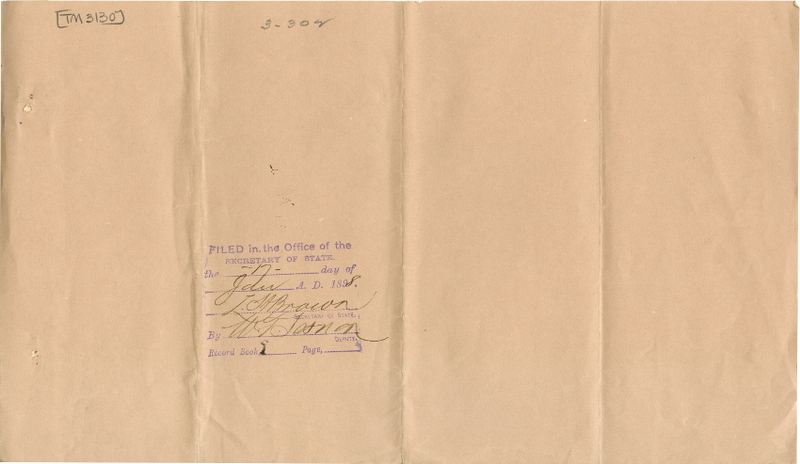 [TM3130]
3-302
FILED in the Office of the
SECRETARY OF STATE.
the -17- day of
A. D. 1898.
L. H. Brown
SECRETARY OF STATE.
By
DEPUTY.
Record Book Page,